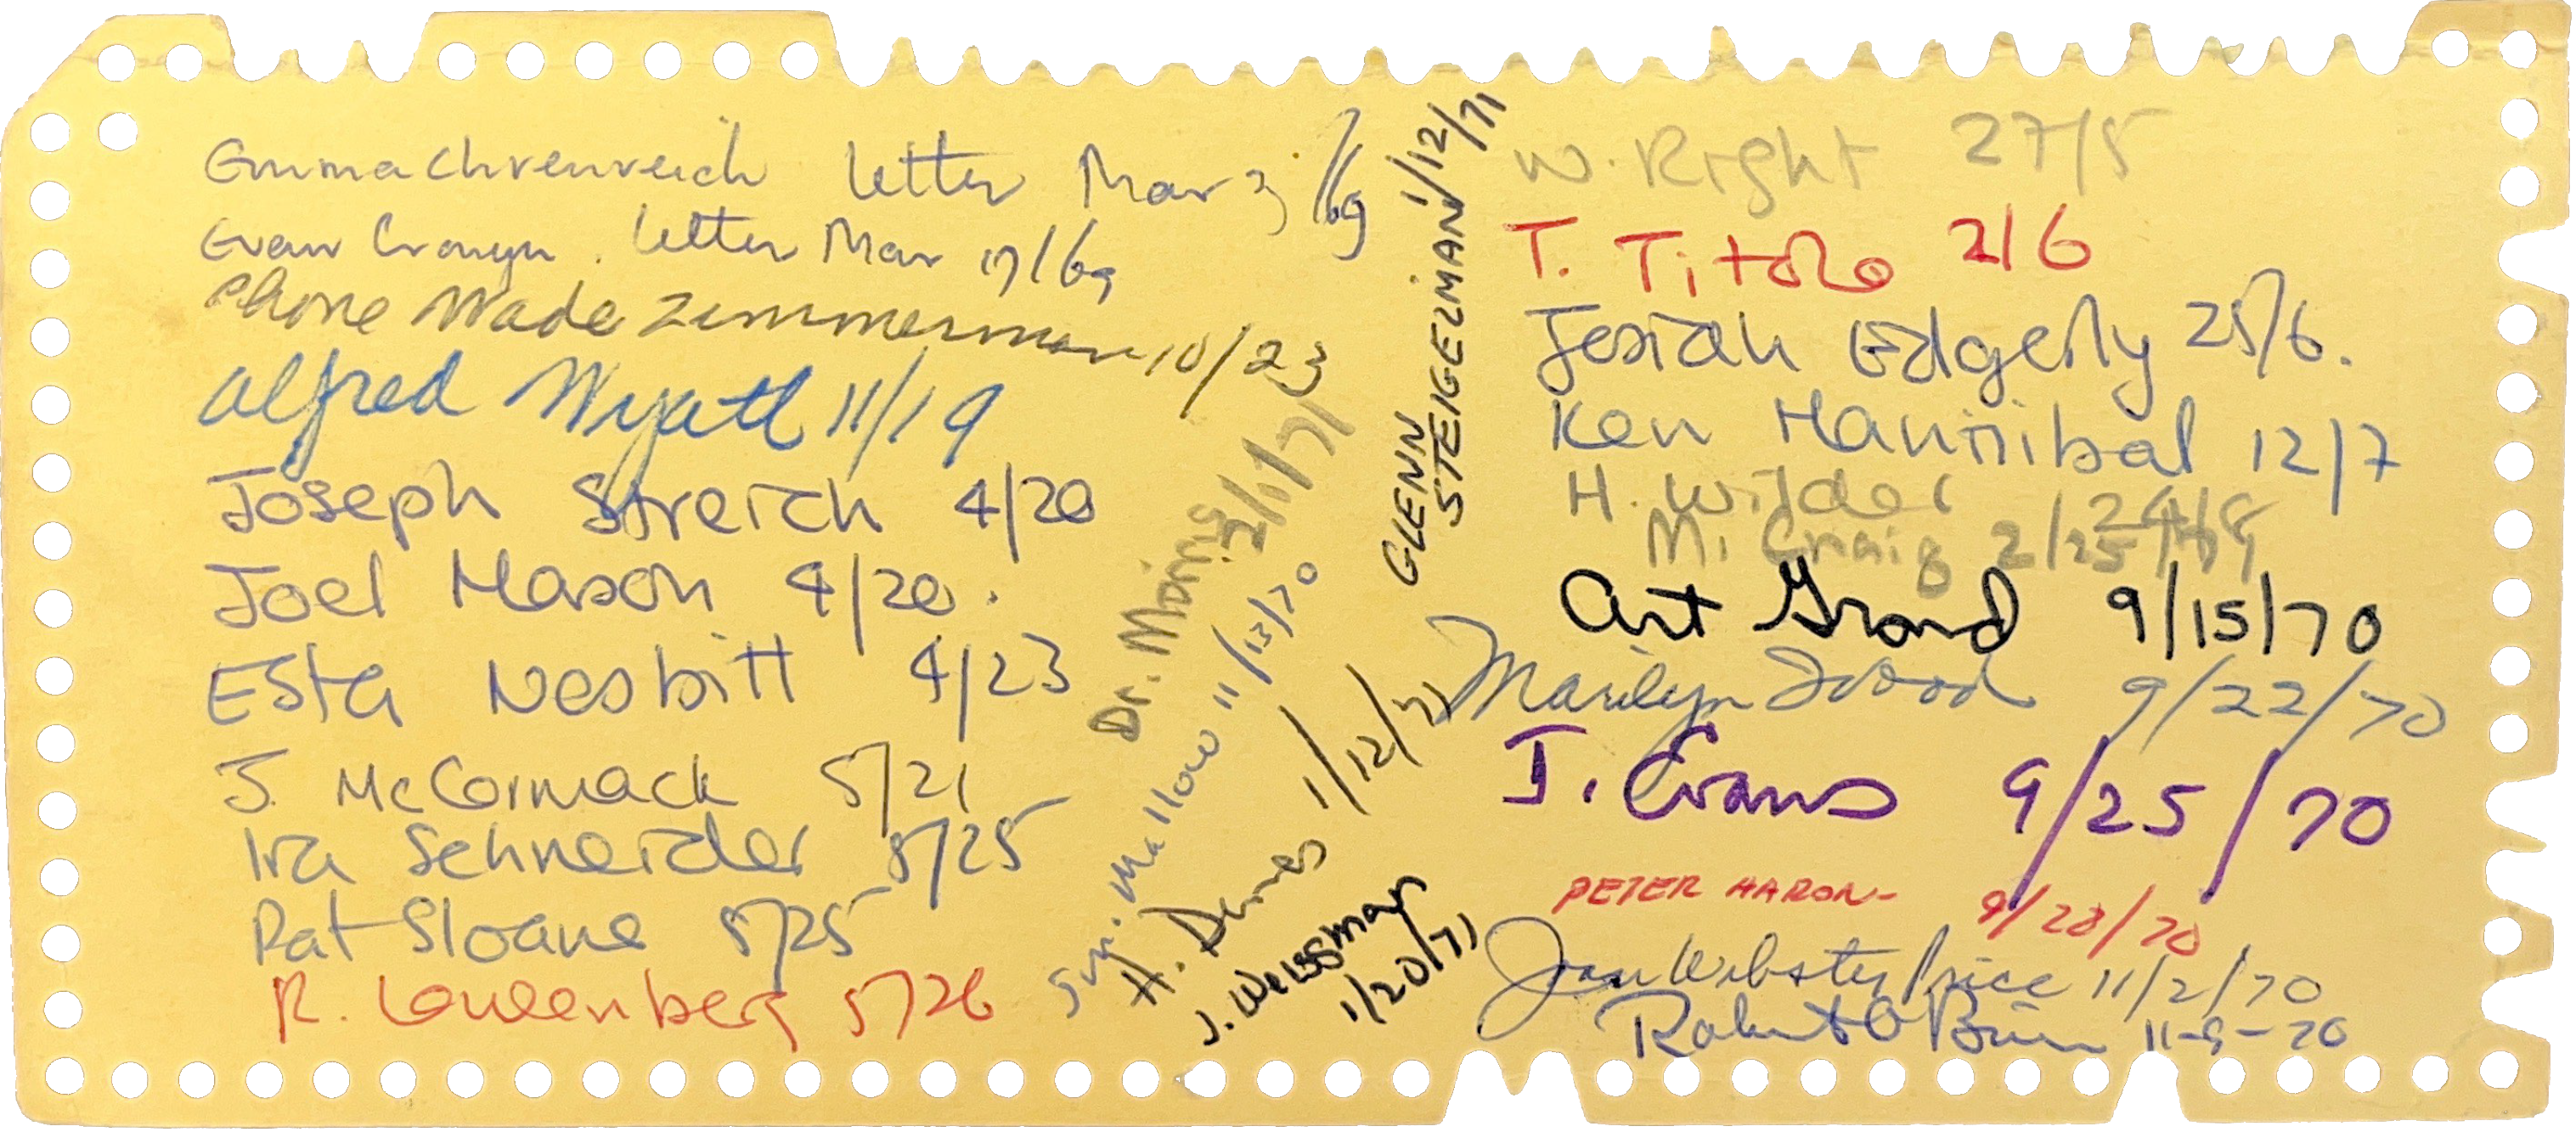 Emma Ehrenreich letter Mar 3/69
Evan Cronyn. letter Mar 17/69
Phone Wade Zimmerman 10/23
Alfred Wyatt 11/19
Joseph Streich 4/20
Joel Mason 4/20.
Esta Nesbitt 4/23
J. McCormack 5/21
Ira Schneider 5/25
Pat Sloane 5/25
R. 5/26
Dr. 2/1/71
Mallow 11/13/70
H. 1/12/71
J. Weissman
1/20/71
GLENN
STEIGELMAN 1/12/71
W. Right 27/5
T. Titolo 2/6
Josiah Edgerly 25/6.
Ken Hannibal 12/7
H. Wilder 24/8
M. Craig 2/25
Art Grand 9/15/70
Marilyn Wood 9/22/70
J. Evans 9/25/70
PETER HARON- 9/28/70
Jan Webster Price 11/2/70
Robert O'Brien 11-9-70